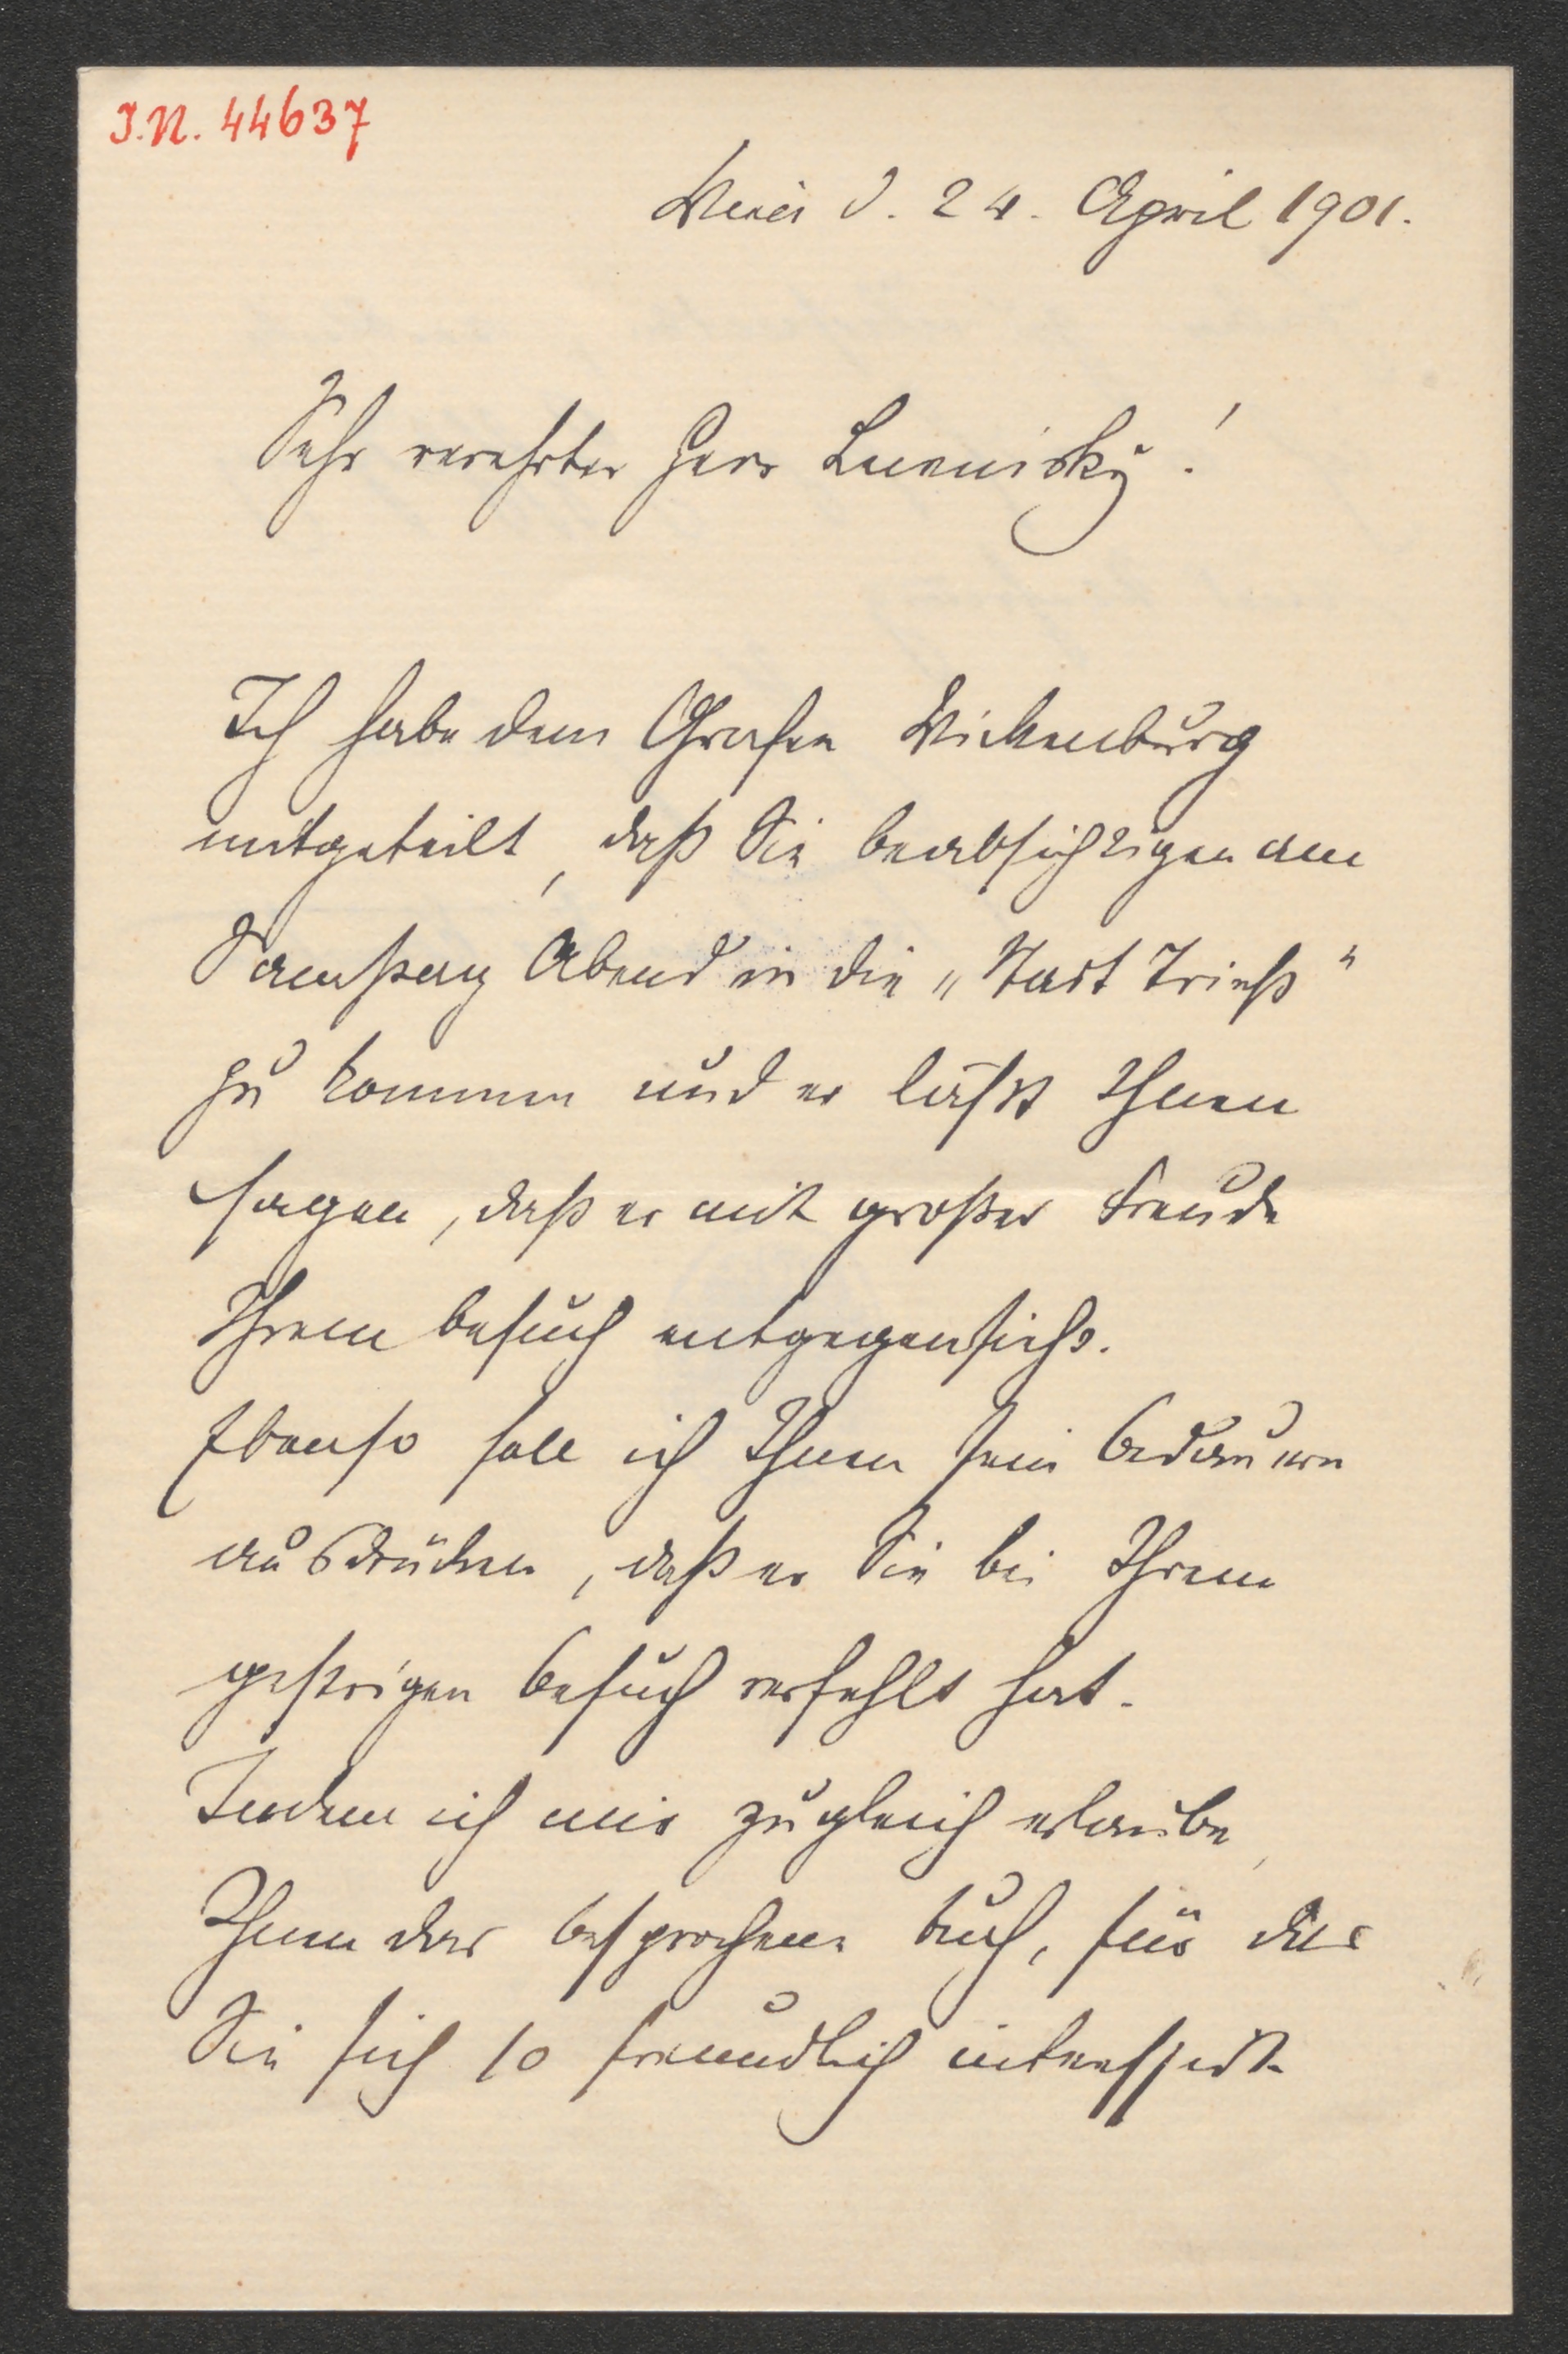 I.N. 44637
Wien d. 24. April 1901.
Sehr verehrter Herr Lewinsky!
Ich habe dem Grafen Wickenburg
mitgeteilt, daß Sie beabsichtigen am
Samstag Abend in die „Stadt Triest“
zu kommen und er läßt Ihnen
sagen, daß er mit großer Freude
Ihrem Besuch entgegensieht.
Ebenso soll ich Ihnen sein Bedauern
ausdrücken, daß er Sie bei Ihrem
gestrigen Besuch verfehlt hat.
Indem ich mir zugleich erlaube,
Ihnen das besprochene Buch, für das
Sie sich so freundlich interessirt